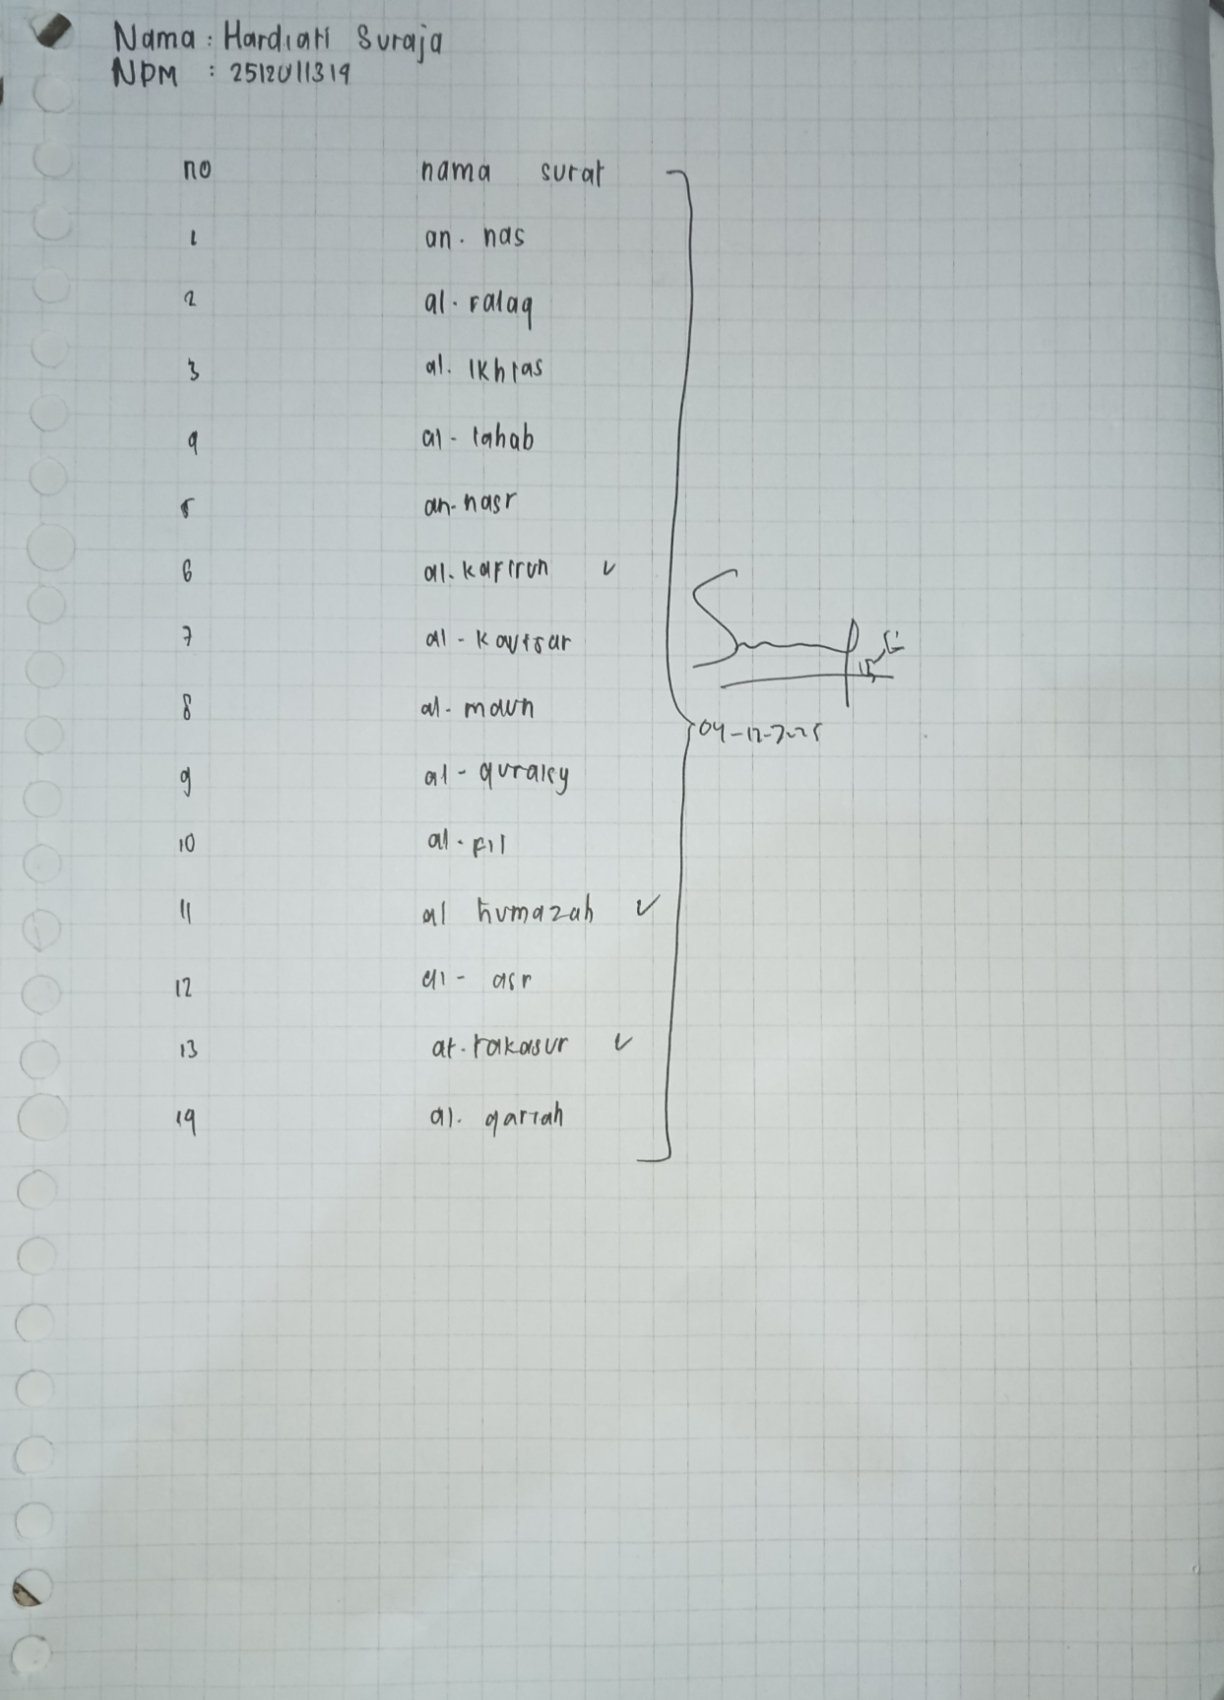 Nama : Hardiati Suraja
NPM : 2512011319
no nama surat
1 an. nas
2 al. falaq
3 al. Ikhlas
4 al - lahab
5 an-nasr
6 al. kafirun ✓
7 al - kautsar
8 al- maun
9 al - quraisy
10 al. fil
11 al humazah ✓
12 al - asr
13 at. takasur ✓
14 al. qariah
04-12-2025